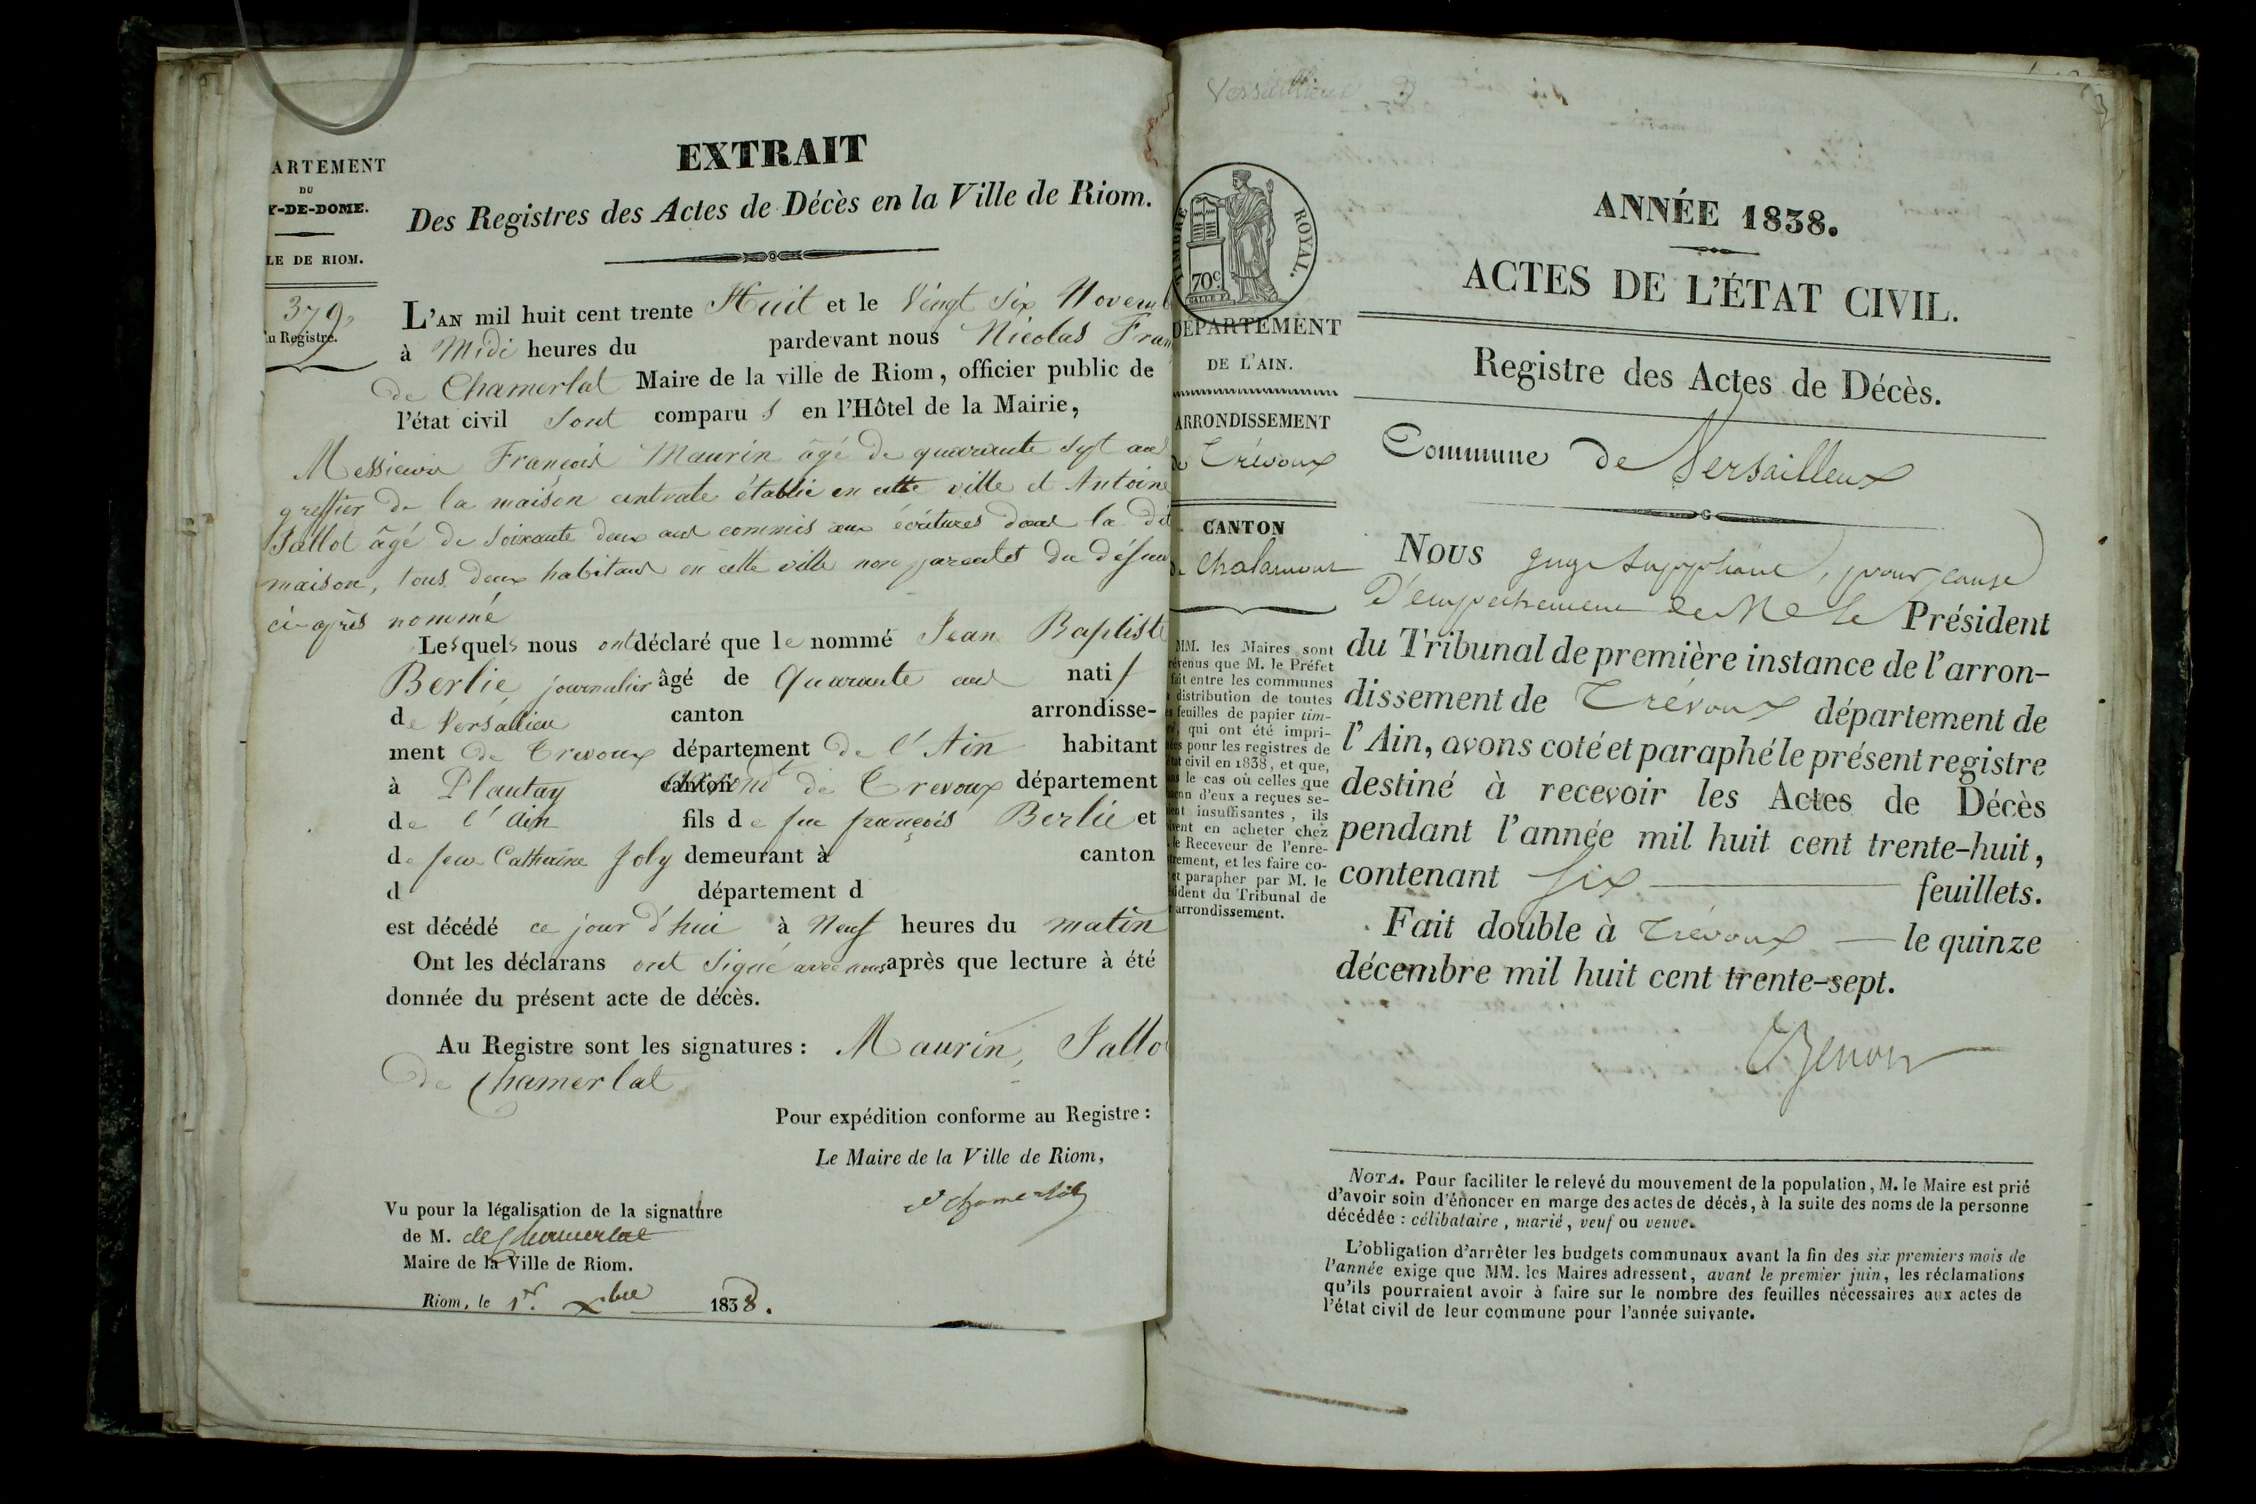 EXTRAIT
Des Registres des Actes de Décès en la Ville de Riom.
ARTEMENT
DU
Y-DE-DOME.
LE DE RIOM.
379
u Registre.
L'AN mil huit cent trente Huit et le Vingt Six Novemb
à Midi heures du pardevant nous Nicolas Fran
de Chamerlat Maire de la ville de Riom, officier public de
l'état civil sont comparu s en l'Hôtel de la Mairie,
Messieurs François Maurin âgé de quarante sept ans
greffier de la maison centrale établie en cette ville et Antoine
âgé de soixante deux ans commis aux écritures dans la dit
maison, tous deux habitans en cette ville non parents du défun
ci-après nommé
Lesquels nous ont déclaré que le nommé Jean Baptiste
Berlie journalier âgé de Quarante ans natif
de Versallieu canton arrondisse-
ment de Trevoux département de l'Ain habitant
à Plantay canton arrond.t de Trevoux département
de l'Ain fils de feu françois Berlie et
de feue Catherine Joly demeurant à canton
d département d
est décédé ce jour d'hui à Neuf heures du matin
Ont les déclarans ont signé avec nous après que lecture à été
donnée du présent acte de décès.
Au Registre sont les signatures : Maurin,
de Chamerlat
Pour expédition conforme au Registre :
Le Maire de la Ville de Riom,
de Chamerlat
Vu pour la légalisation de la signature
de M. de Chamerlat
Maire de la Ville de Riom.
Riom, le 1er. Xbre 1838.
TIMBRE ROYAL.
70c.
DÉPARTEMENT
DE L'AIN.
ARRONDISSEMENT
de Trévoux
CANTON
de Chalamont
MM. les Maires sont
révenus que M. le Préfet
fait entre les communes
distribution de toutes
s feuilles de papier tim-
, qui ont été impri-
ées pour les registres de
état civil en 1838, et que,
ns le cas où celles que
acun d'eux a reçues se-
ient insuffisantes, ils
ivent en acheter chez
le Receveur de l'enre-
trement, et les faire co-
et parapher par M. le
sident du Tribunal de
arrondissement.
ANNÉE 1838.
ACTES DE L'ÉTAT CIVIL.
Registre des Actes de Décès.
Commune de Versailleux
Nous Juge Suppléant, pour cause
D'empêchement de M. le Président
du Tribunal de première instance de l'arron-
dissement de Trévoux département de
l'Ain, avons coté et paraphé le présent registre
destiné à recevoir les Actes de Décès
pendant l'année mil huit cent trente-huit,
contenant six feuillets.
Fait double à Trévoux le quinze
décembre mil huit cent trente-sept.
NOTA. Pour faciliter le relevé du mouvement de la population, M. le Maire est prié
d'avoir soin d'énoncer en marge des actes de décès, à la suite des noms de la personne
décédée : célibataire, marié, veuf ou veuve.
L'obligation d'arrêter les budgets communaux avant la fin des six premiers mois de
l'année exige que MM. les Maires adressent, avant le premier juin, les réclamations
qu'ils pourraient avoir à faire sur le nombre des feuilles nécessaires aux actes de
l'état civil de leur commune pour l'année suivante.